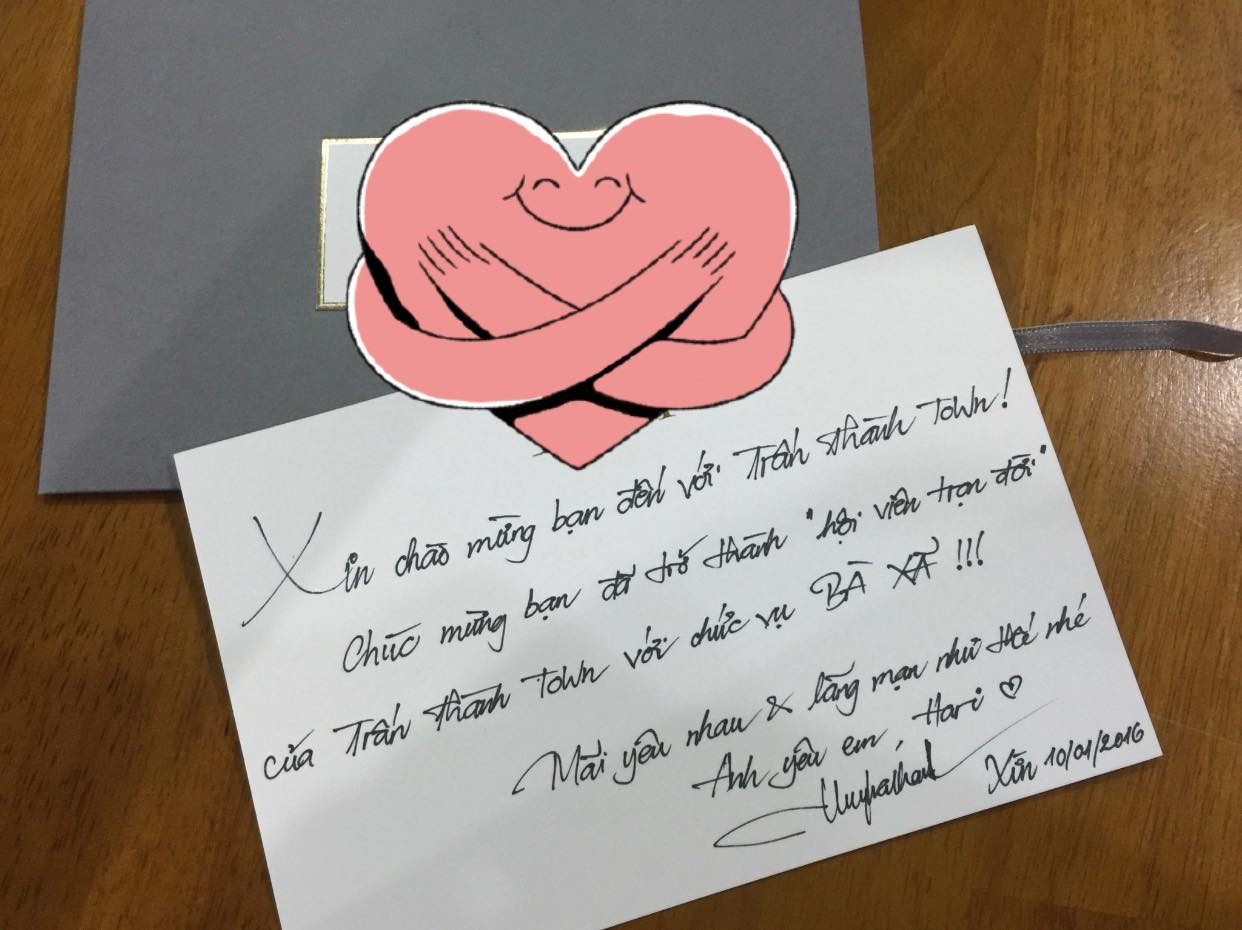 Xỉn chào mừng bạn đến với Trấn Thành Town!
Chúc mừng bạn đã trở thành "hội viên trọn đời"
của Trấn Thành Town với chức vụ BÀ XÃ !!!
Mãi yêu nhau & lãng mạn như thế nhé
Anh yêu em, Hari ♡
Xỉn 10/01/2016